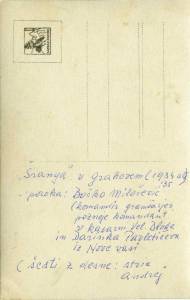 "Šranga" v Grahovem (1934 ali
'35
poroka: Boško Milošević
(komandir graničarjev
pozneje komandant
v kasarni Vel. Bloke
in Darinka Pavličičeva
iz Nove vasi
(šesti z desne: stric
Andrej